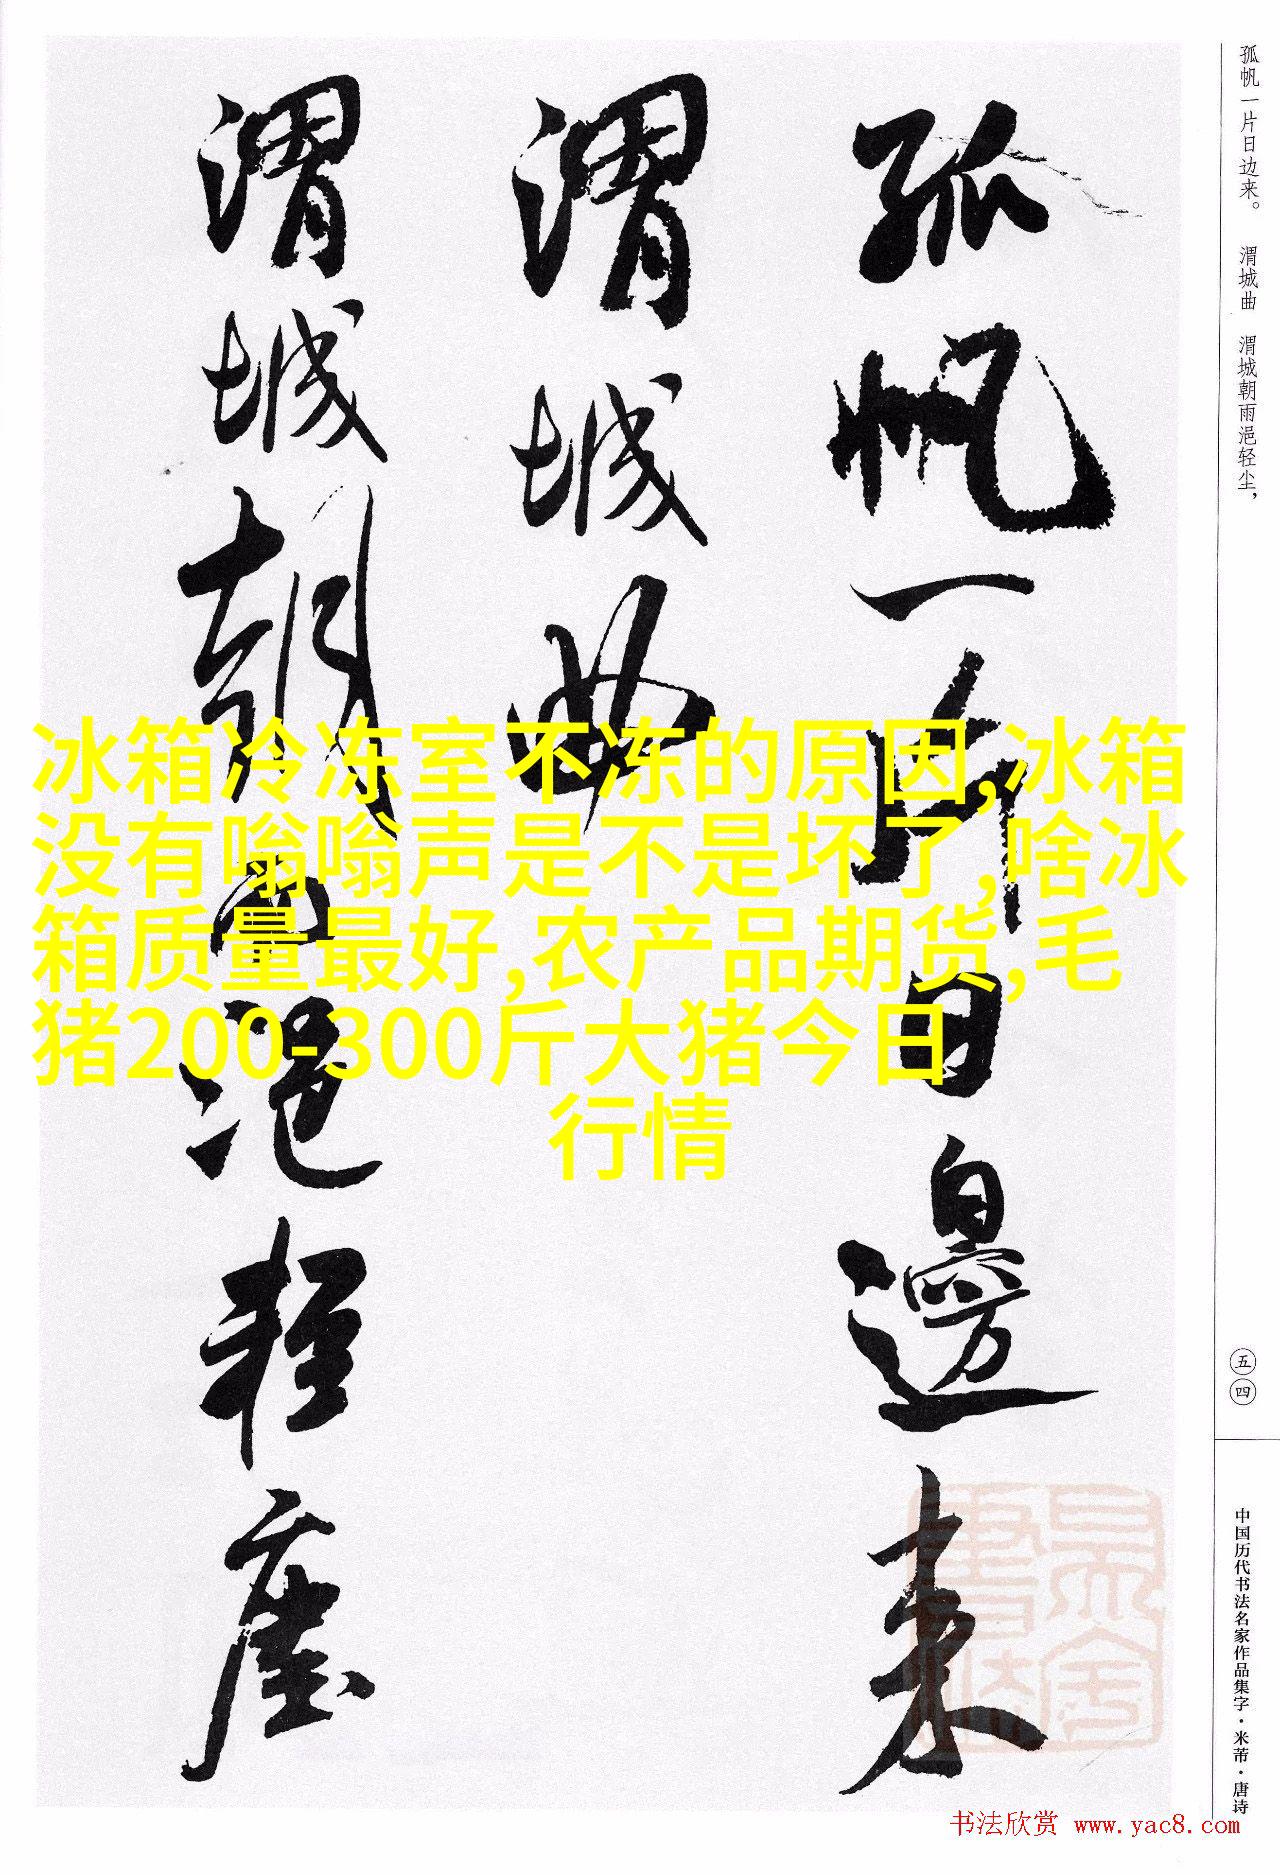 孤帆一片日邊来
渭城曲
渭城朝雨浥軽塵
孤帆一片日边来。 渭城曲 渭城朝雨浥轻尘，
冰箱冷冻室不冻的原因,冰箱
没有嗡嗡声是不是坏了,啥冰
箱质量最好,农产品期货,毛
猪200-300斤大猪今日
行情
五四
中国历代书法名家作品集字·米芾·唐诗
书法欣赏 www.yac8.com